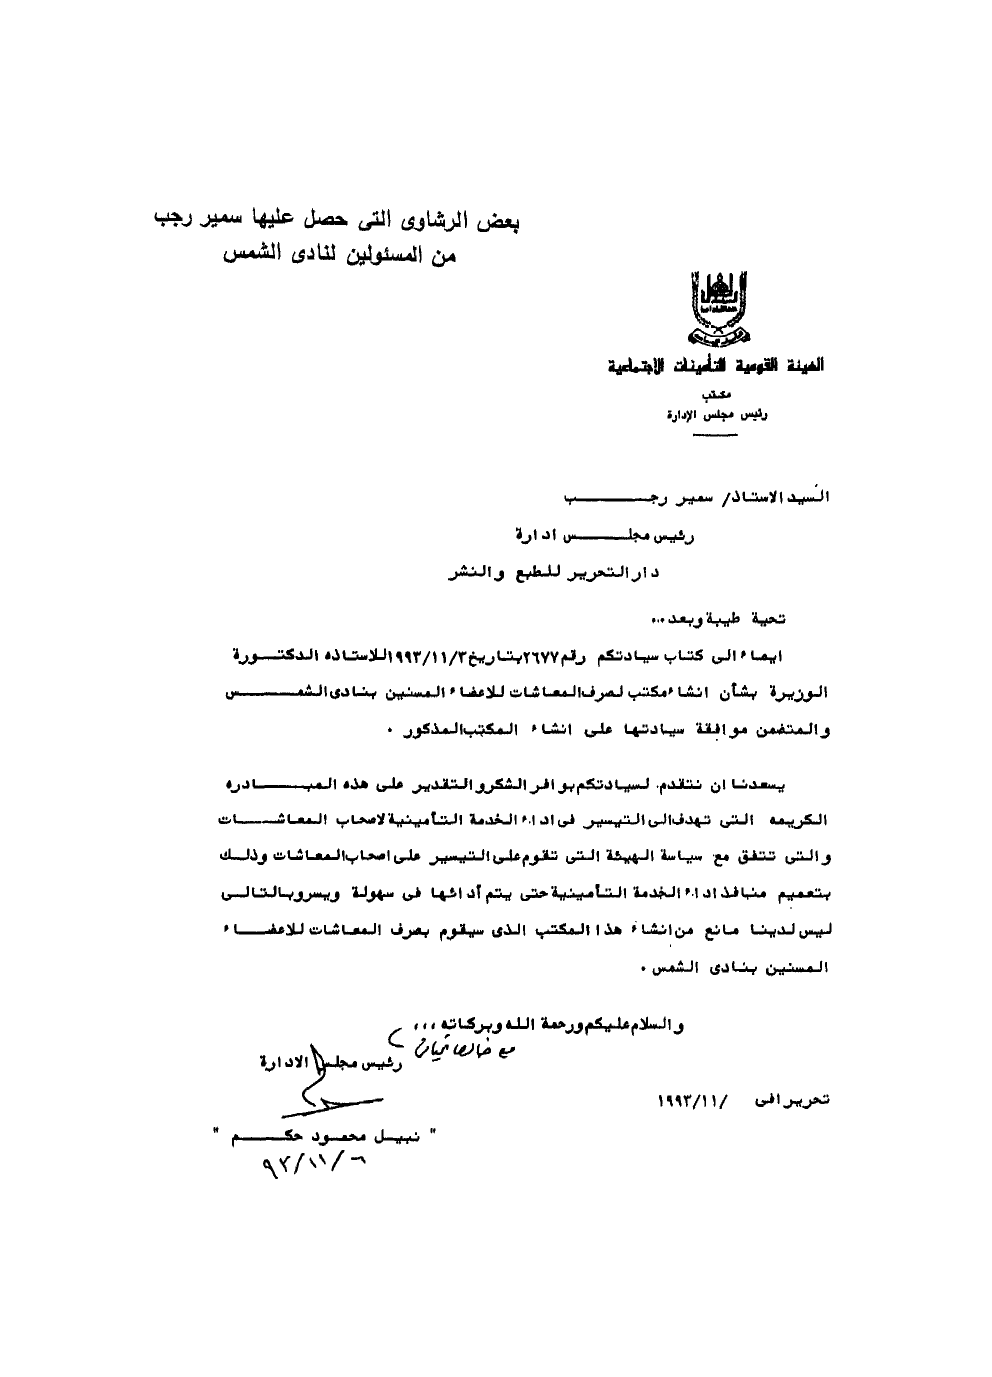 بعض الرشاوى التى حصل عليها سمير رجب
من المسئولين لنادى الشمس
الهيئة القومية للتأمينات الاجتماعية
مكتب
رئيس مجلس الإدارة
السيد الاستاذ/ سمير رجـــــب
رئيس مجلـــــس ادارة
دار التحرير للطبع والنشر
تحية طيبة وبعد ...
ايماء الى كتاب سيادتكم رقم ٢٦٧٧ بتاريخ ١٩٩٣/١١/٣ للاستاذه الدكتـــورة
الوزيرة بشأن انشاء مكتب لصرف المعاشات للاعضاء المسنين بنادى الشمـــس
والمتضمن موافقة سيادتها على انشاء المكتب المذكور .
يسعدنا ان نتقدم لسيادتكم بوافر الشكر والتقدير على هذه المبـــادره
الكريمه التى تهدف الى التيسير فى اداء الخدمة التأمينية لاصحاب المعاشـــات
والتى تتفق مع سياسة الهيئة التى تقوم على التيسير على اصحاب المعاشات وذلـك
بتعميم منافذ اداء الخدمة التأمينية حتى يتم أدائها فى سهولة ويسر وبالتالـى
ليس لدينا مانع من انشاء هذا المكتب الذى سيقوم بصرف المعاشات للاعضـــاء
المسنين بنادى الشمس .
والسلام عليكم ورحمة الله وبركاته ،،،
مع خالص تحياتى
رئيس مجلس الادارة
تحريرا فى    /١٩٩٣/١١
" نبيـل محمـود حكـــــم "
٩٣/١١/٦